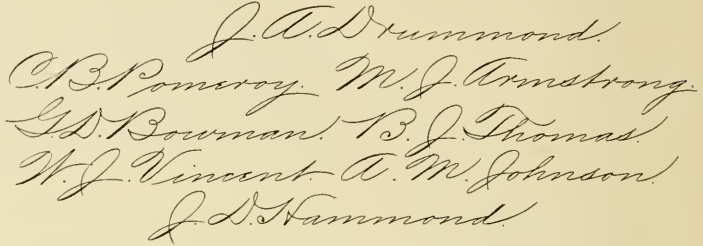 J. A. Drummond.
C. B. Pomeroy. M. J. Armstrong.
G. D. Bowman. B. J. Thomas.
W. J. Vincent A. M. Johnson.
J. D. Hammond.